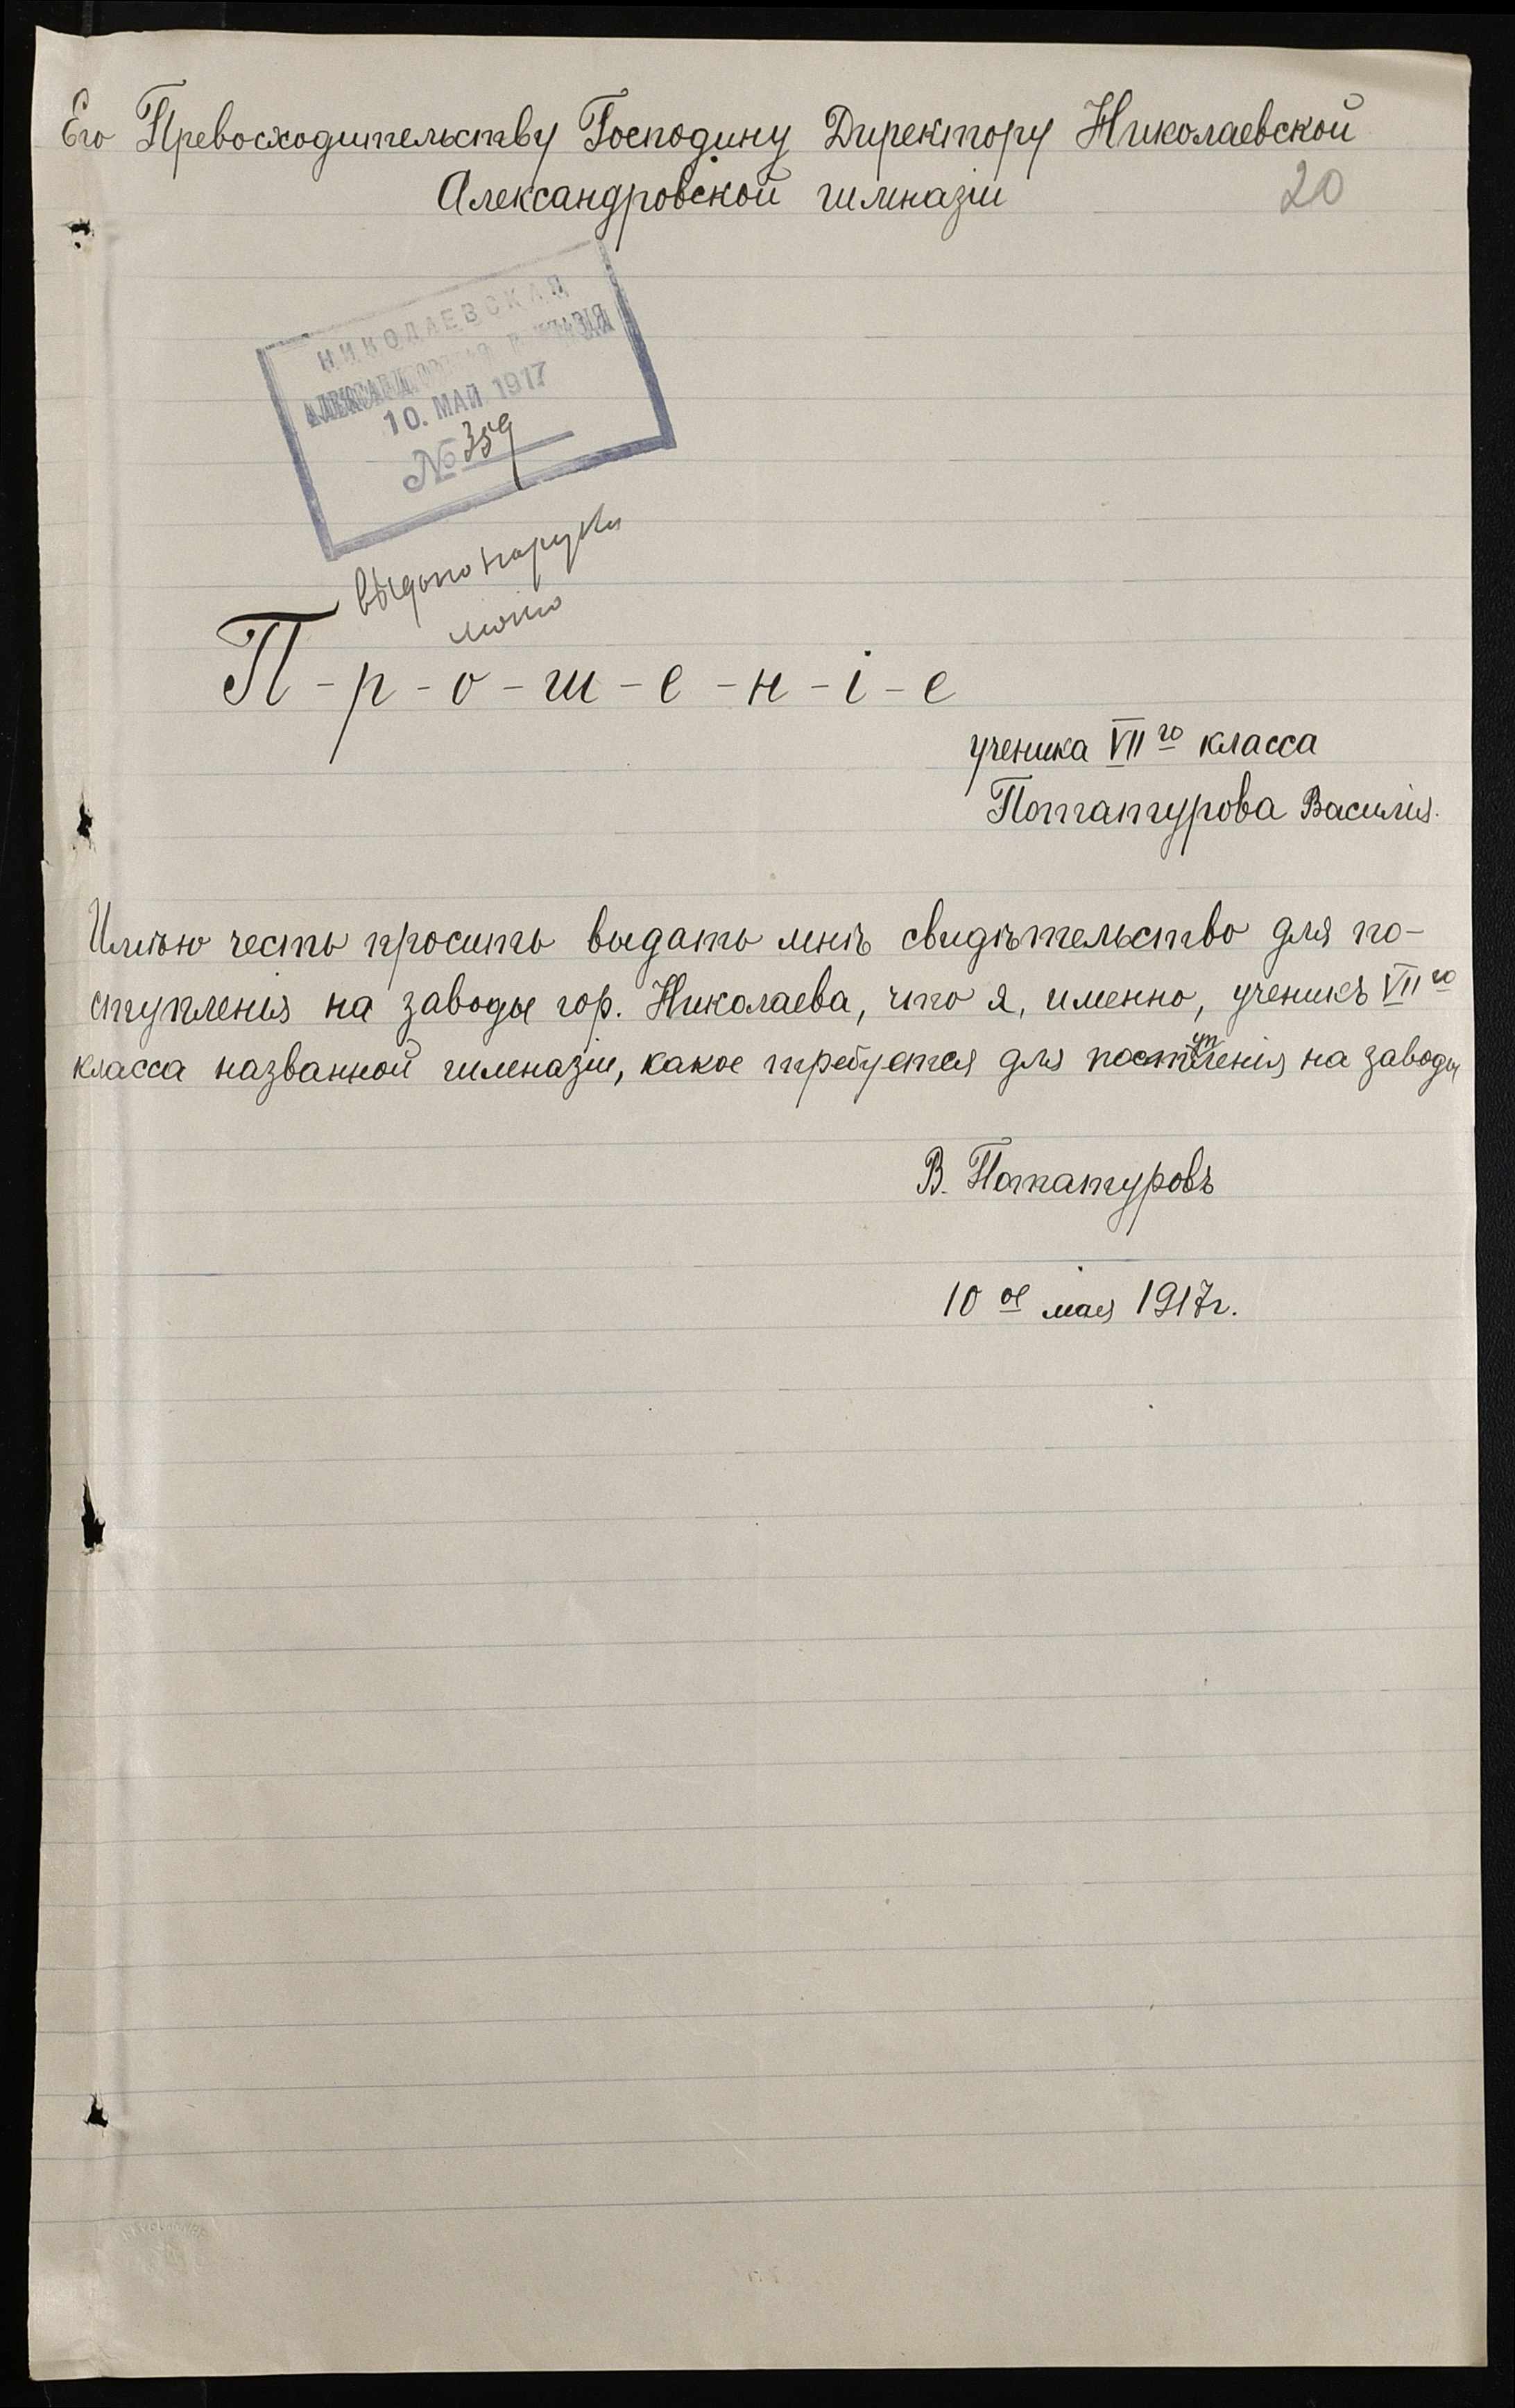 Его Превосходительству Господину Директору Николаевской
Александровской гимназіи
20
НИКОЛАЕВСКАЯ
АЛЕКСАНДРОВСКАЯ ГИМНАЗІЯ
10. МАЙ 1917
№ 359
выдано на руки
П-р-о-ш-е-н-і-е
ученика VII го класса
Потатурова Василія.
Имѣю честь просить выдать мнѣ свидѣтельство для по-
ступленія на заводы гор. Николаева, что я, именно, ученикъ VII го
класса названной гимназіи, какое требуется для поступленія на заводы
В. Потатуровъ
10 ое мая 1917 г.